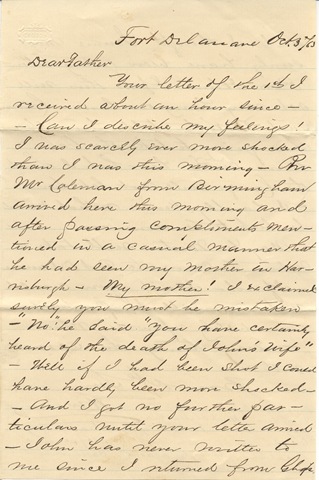 Fort Delaware Oct. 5/63
Dear Father
Your letter of the 1st I
received about an hour since -
- Can I describe my feelings!
I was scarcely ever more shocked
than I was this morning - Rev
Mr Coleman from Birmingham
arrived here this morning and
after passing compliments men-
tioned in a casual manner that
he had seen my Mother in Har-
risburgh - My Mother! I exclaimed
surely you must be mistaken
- "No." he said "you have certainly
heard of the death of John's Wife"
- Well if I had been shot I could
have hardly been more shocked -
- And I got no further par-
ticulars until your letter arrived
- John has never written to
me since I returned from